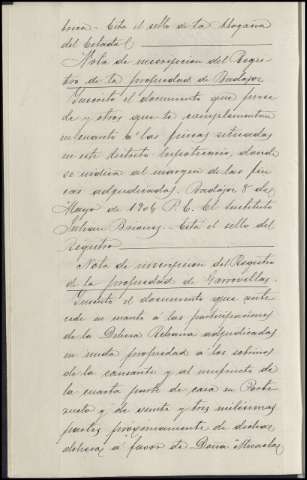 tinca - Está el sello de la Abogacía
del Estado
Nota de inscripcion del Regis-
tro de la propiedad de Badajoz
Inscrito el documento que prece-
de y otros que le complementan
en cuanto á las fincas situadas
en este distrito hipotecario, donde
se indica al margen de las fin-
cas adjudicadas. Badajoz 8 de
Mayo de 1906 P. E. El Sustituto
Julian - Está el sello del
Registro
Nota de inscripcion del Registro
de la propiedad de Garrovillas.
Inscrito el documento que ante-
cede en cuanto á las participaciones
de la Dehesa adjudicadas
en nuda propiedad á los sobrinos
de la causante y al usufructo de
la cuarta parte de casa en Porte-
zuelo y de veinte y tres milésimas
partes proximamente de dichas
dehesas á favor de Doña Micaela